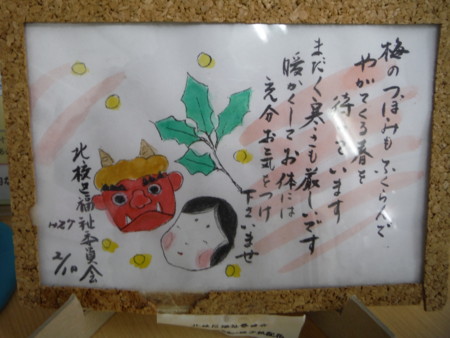 梅のつぼみもふくらんで
やがてくる春を
待っています
まだまだ寒さも厳しいです
暖かくしてお体には
充分お気をつけ
下さいませ
北校区福祉委員会
No.27
2/10